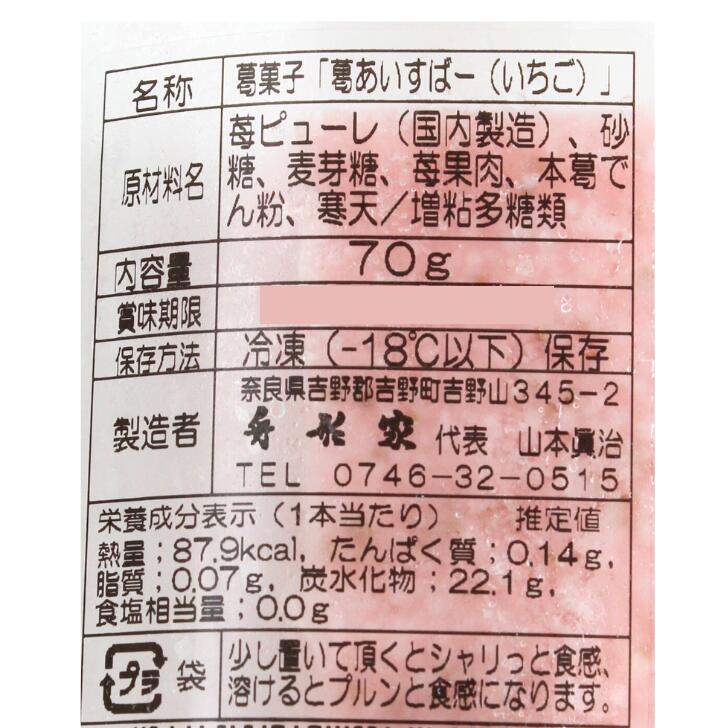 名称 葛菓子「葛あいすばー（いちご）」
原材料名 苺ピューレ（国内製造）、砂
糖、麦芽糖、苺果肉、本葛で
ん粉、寒天／増粘多糖類
内容量 70g
賞味期限
保存方法 冷凍（-18℃以下）保存
製造者 奈良県吉野郡吉野町吉野山345-2
代表 山本眞治
TEL 0746-32-0515
栄養成分表示（1本当たり） 推定値
熱量；87.9kcal，たんぱく質；0.14g，
脂質；0.07g，炭水化物；22.1g，
食塩相当量；0.0g
プラ 袋 少し置いて頂くとシャリっと食感、
溶けるとプルンと食感になります。